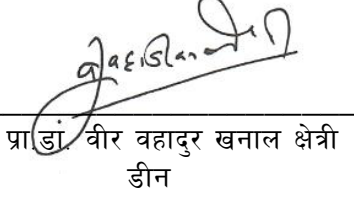 प्रा.डां. वीर वहादुर खनाल क्षेत्री
डीन